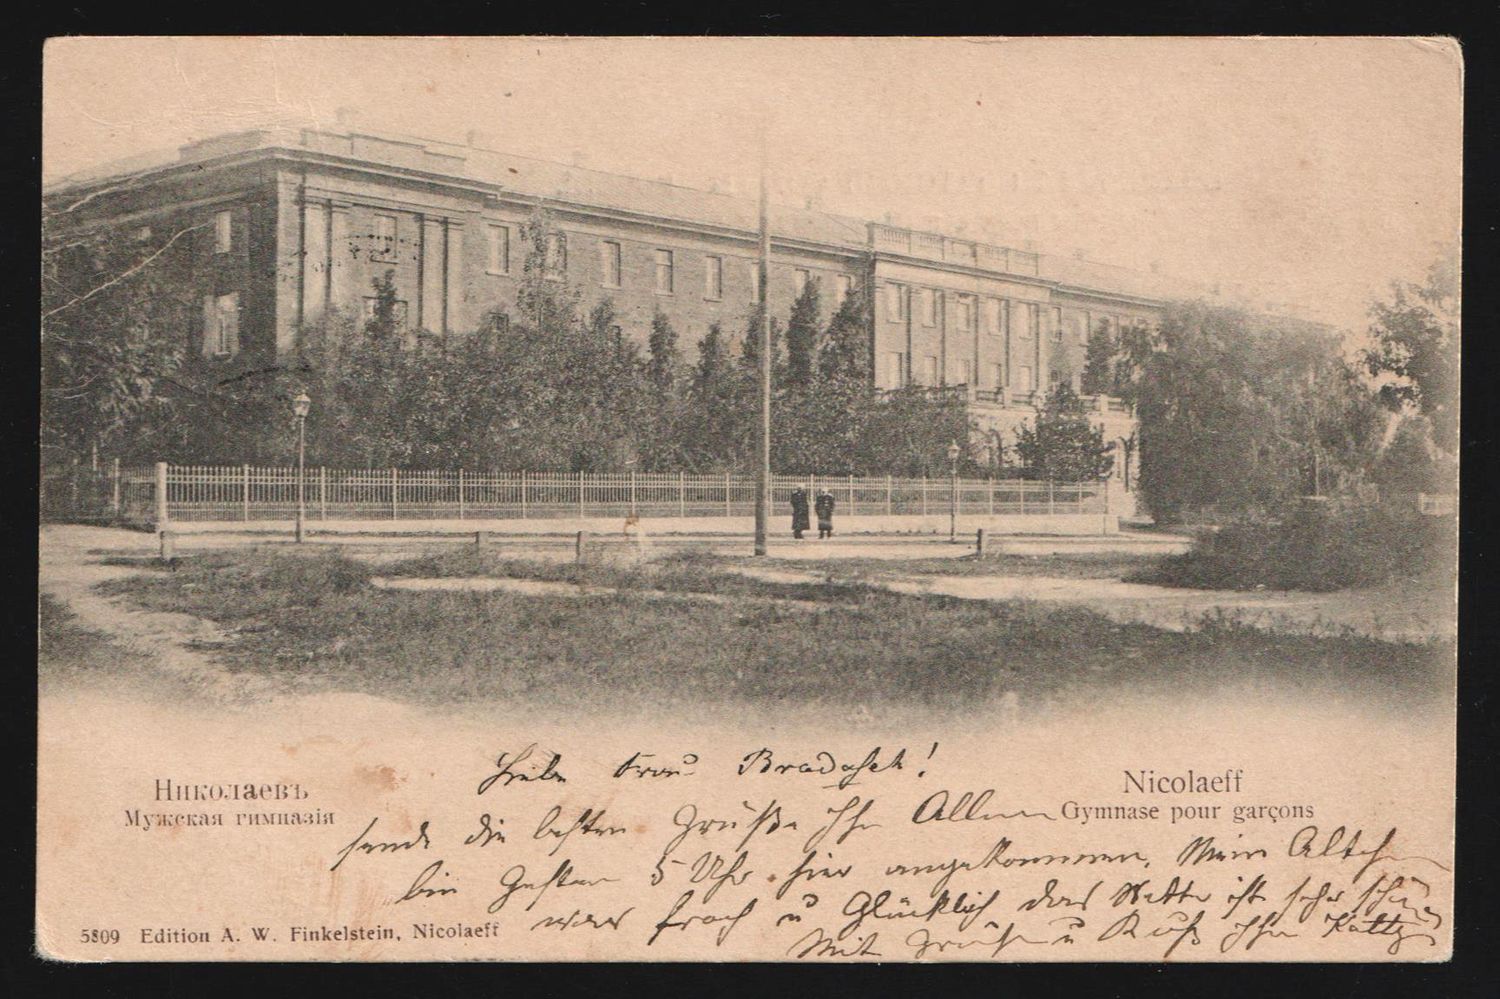 Николаевъ
Мужская гимназія
Nicolaeff
Gymnase pour garçons
Liebe Frau Bradasch!
sende die besten Grüße Ihh Allen
bin Gestern 5 Uhr hier angekommen. Mein
war froh u Glücklich das Wetter ist sehr schön
Mit Gruß u Kuß
5809 Edition A. W. Finkelstein, Nicolaeff